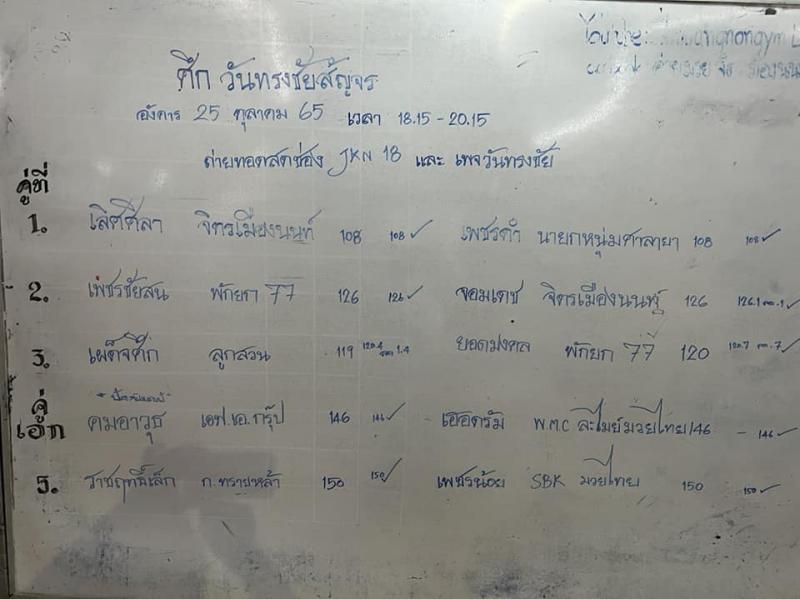 ศึก วันทรงชัยสัญจร
อังคาร 25 ตุลาคม 65 เวลา 18.15 - 20.15
ถ่ายทอดสดช่อง JKN 18 และ เพจวันทรงชัย
คู่ที่
1. เลิศศิลา จิตรเมืองนนท์ 108 108 ✓ เพชรดำ นายกหนุ่มศาลายา 108 108 ✓
2. เพชรชัยสน พักยก 77 126 126 ✓ จอมเดช จิตรเมืองนนท์ 126 126.1 ✓
3. เผด็จศึก ลูกสวน 119 120.4 1.4 ยอดมงคล พักยก 77 120 120.7 .7 ✓
คู่เอก คมอาวุธ เอฟ.เอ.กรุ๊ป 146 146 ✓ เฮอดรัม W.M.C ละไมย์มวยไทย 146 - 146 ✓
5. ราชฤทธิ์เล็ก ก.ทรายหล้า 150 150 ✓ เพชรน้อย SBK มวยไทย 150 150 ✓